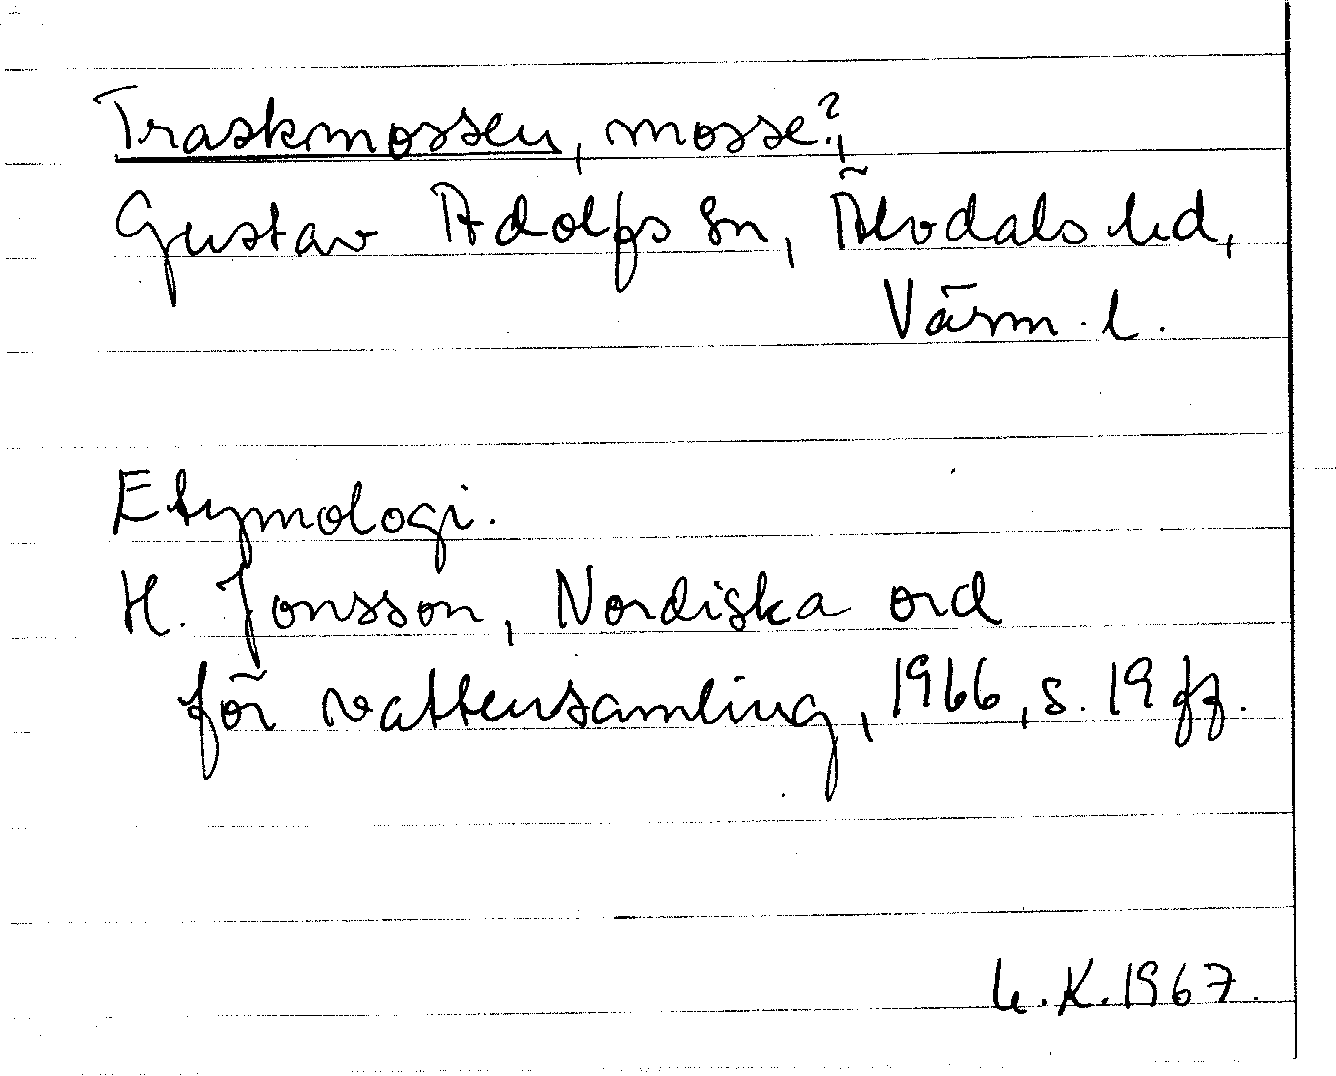 Traskmossen, mosse?,
Gustav Adolfs sn, Älvdals hd,
Värml.
Etymologi.
H. Jonsson, Nordiska ord
för vattensamling, 1966, s. 19 ff.
K. 1967.